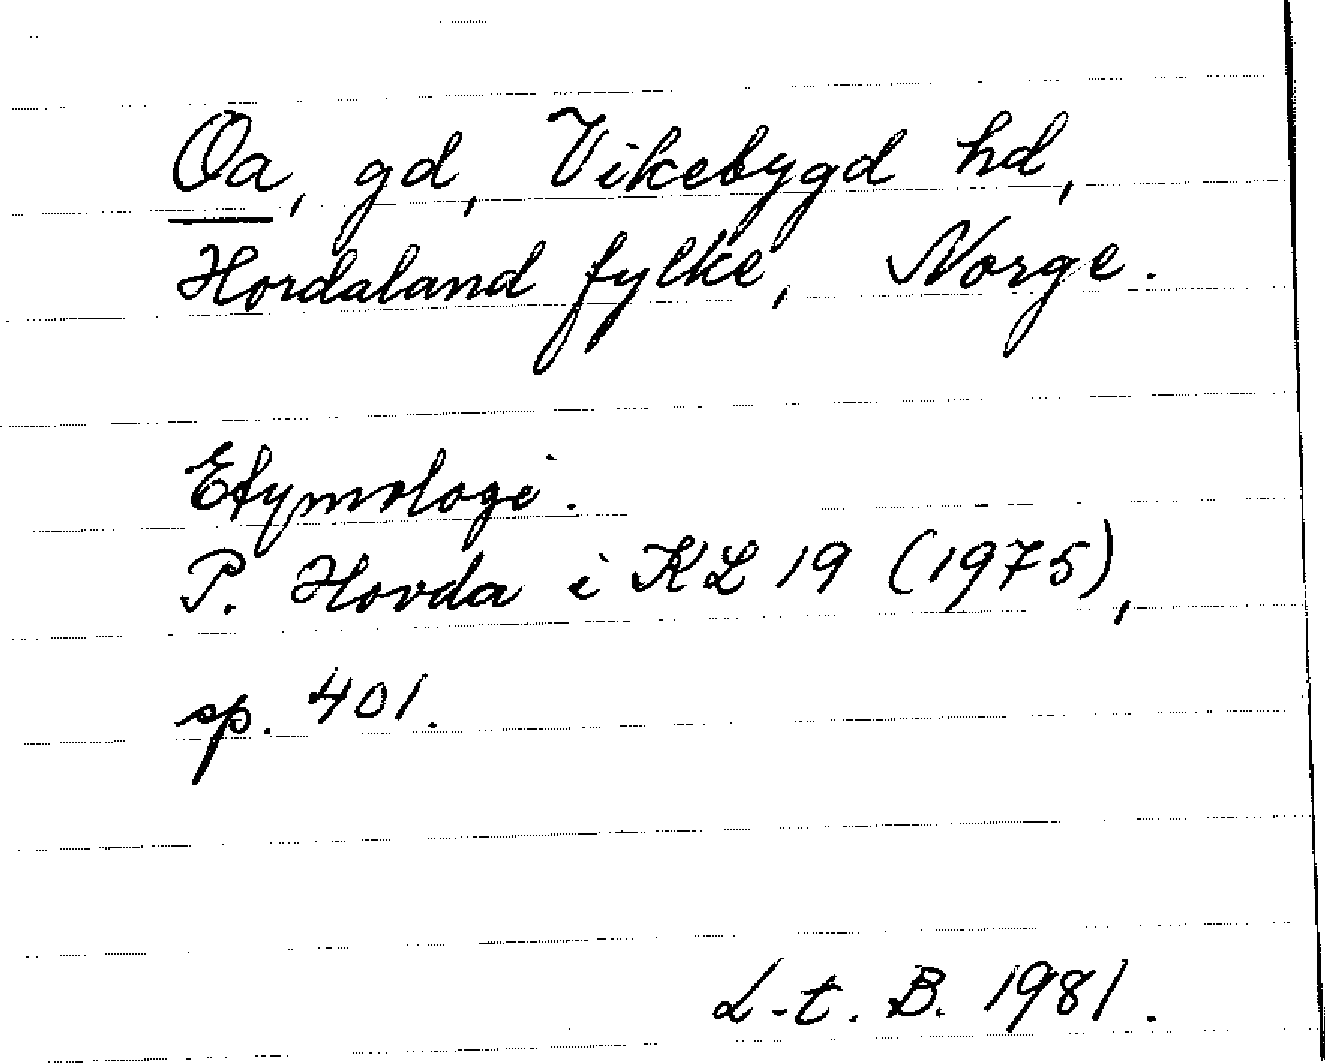 Oa, gd, Vikebygd hd,
Hordaland fylke, Norge.
Etymologi.
P. Hovda i KL 19 (1975),
sp. 401.
L-t. B. 1981.